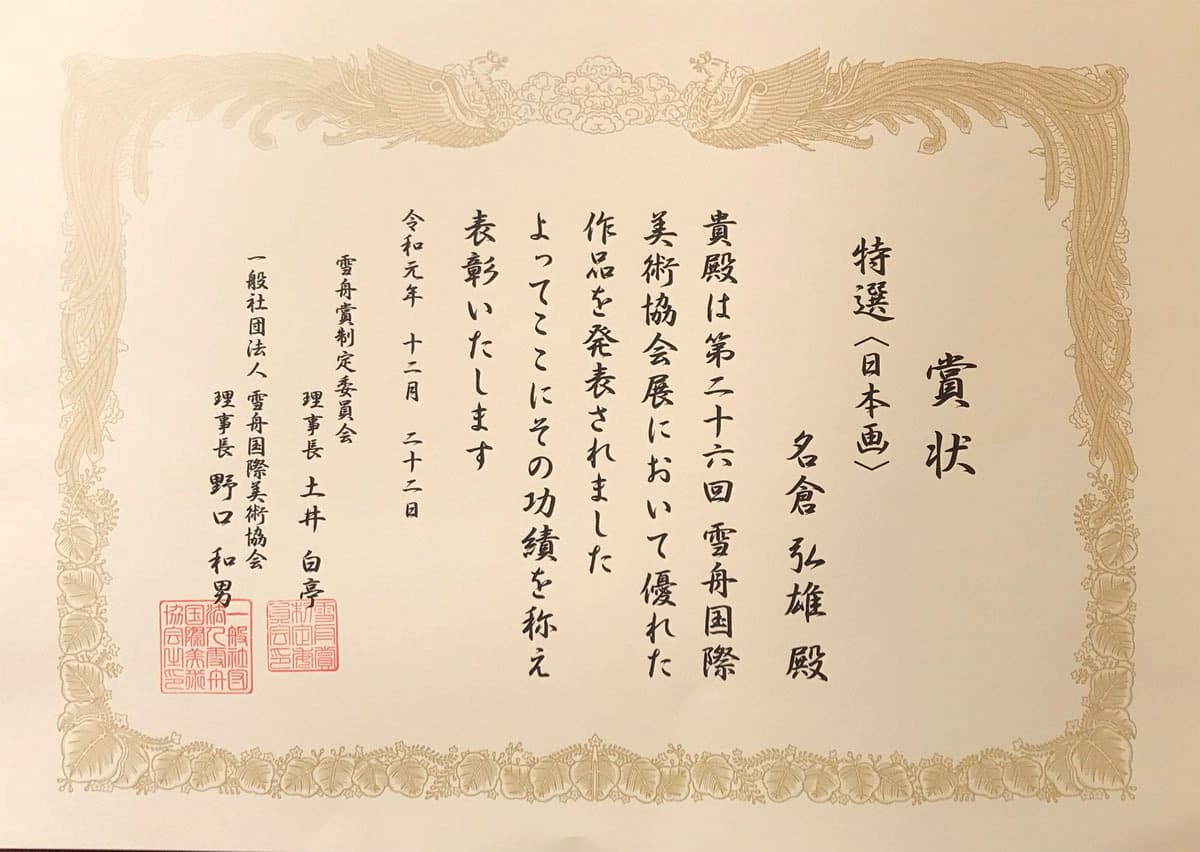 賞状
特選〈日本画〉
名倉 弘雄 殿
貴殿は第二十六回 雪舟国際
美術協会展において優れた
作品を発表されました
よってここにその功績を称え
表彰いたします
令和元年 十二月 二十二日
雪舟賞制定委員会
理事長 土井 白亭
一般社団法人 雪舟国際美術協会
理事長 野口 和男
一般社団
法人雪舟
国際美術
協会之印